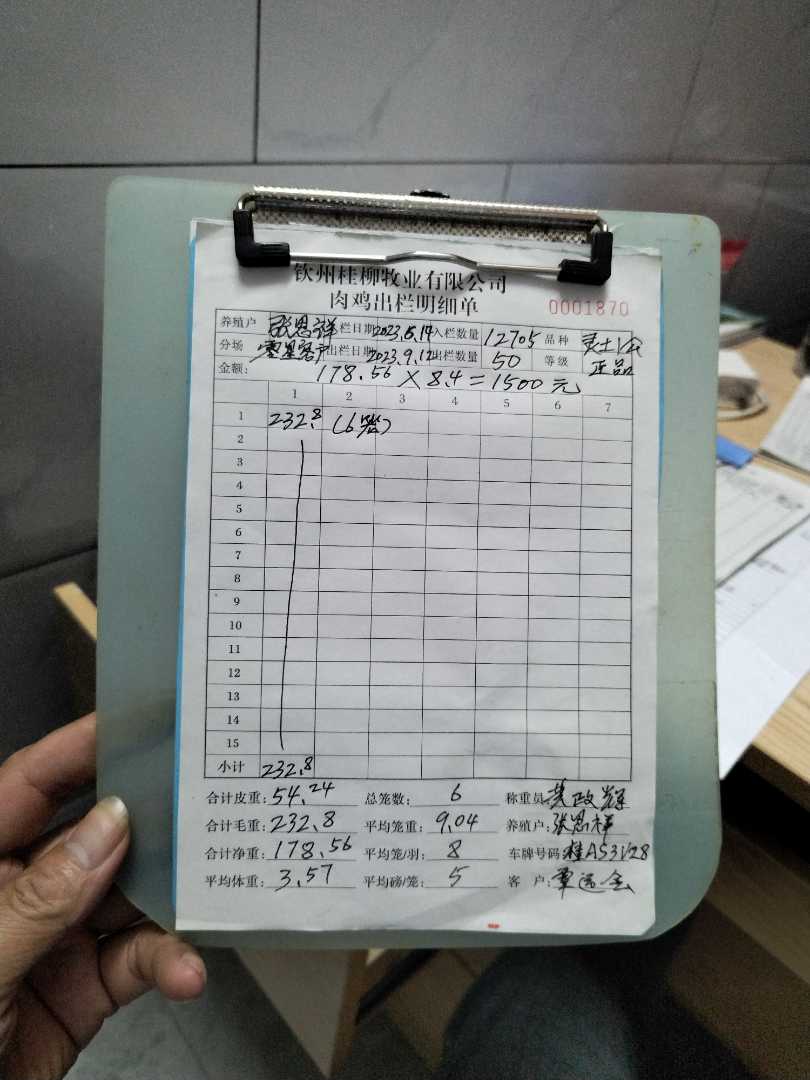 钦州桂柳牧业有限公司
肉鸡出栏明细单 0001870
养殖户 张思祥 入栏日期 2023.5.14 入栏数量 12705 品种 灵土公
分场 零星客户 出栏日期 2023.9.12 出栏数量 50 等级 正品
金额: 178.56 × 8.4 = 1500元
1 2 3 4 5 6 7
1 232.8 (6笼)
2
3
4
5
6
7
8
9
10
11
12
13
14
15
小计 232.8
合计皮重: 54.24 总笼数: 6 称重员: 政辉
合计毛重: 232.8 平均笼重: 9.04 养殖户: 张思祥
合计净重: 178.56 平均笼/羽: 8 车牌号码: 桂AS3128
平均体重: 3.57 平均磅/笼: 5 客户: 覃运会